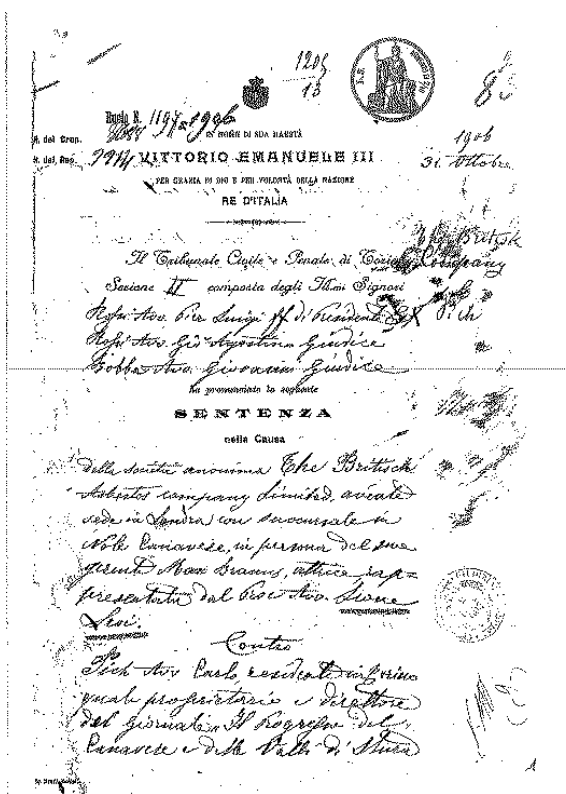 1205
13
Ruolo N. 1197-1906
IN NOME DI SUA MAESTÀ
N. del Rep. VITTORIO EMANUELE III
PER GRAZIA DI DIO E PER VOLONTÀ DELLA NAZIONE
RE D'ITALIA
1906
31 Ottobre
The Britisch
Company
Pich
Il Tribunale Civile e Penale di Torino
Sezione II composta degli Ill.mi Signori
Avv. Pier Luigi ff di Presidente
Avv. Gio Agostino Giudice
Avv. Giovanni Giudice
ha pronunciato la seguente
SENTENZA
nella Causa
della società anonima The Britisch
Asbestos company Limited, avente
sede in Londra con succursale in
Nole Canavese, in persona del suo
gerente Max Brauns, attrice rap=
presentata dal Proc Avv. Sione
Levi.
Contro
Pich Avv Carlo, residente in Torino
quale proprietario e direttore
del giornale Il Progresso del
Canavese e delle Valli di Stura